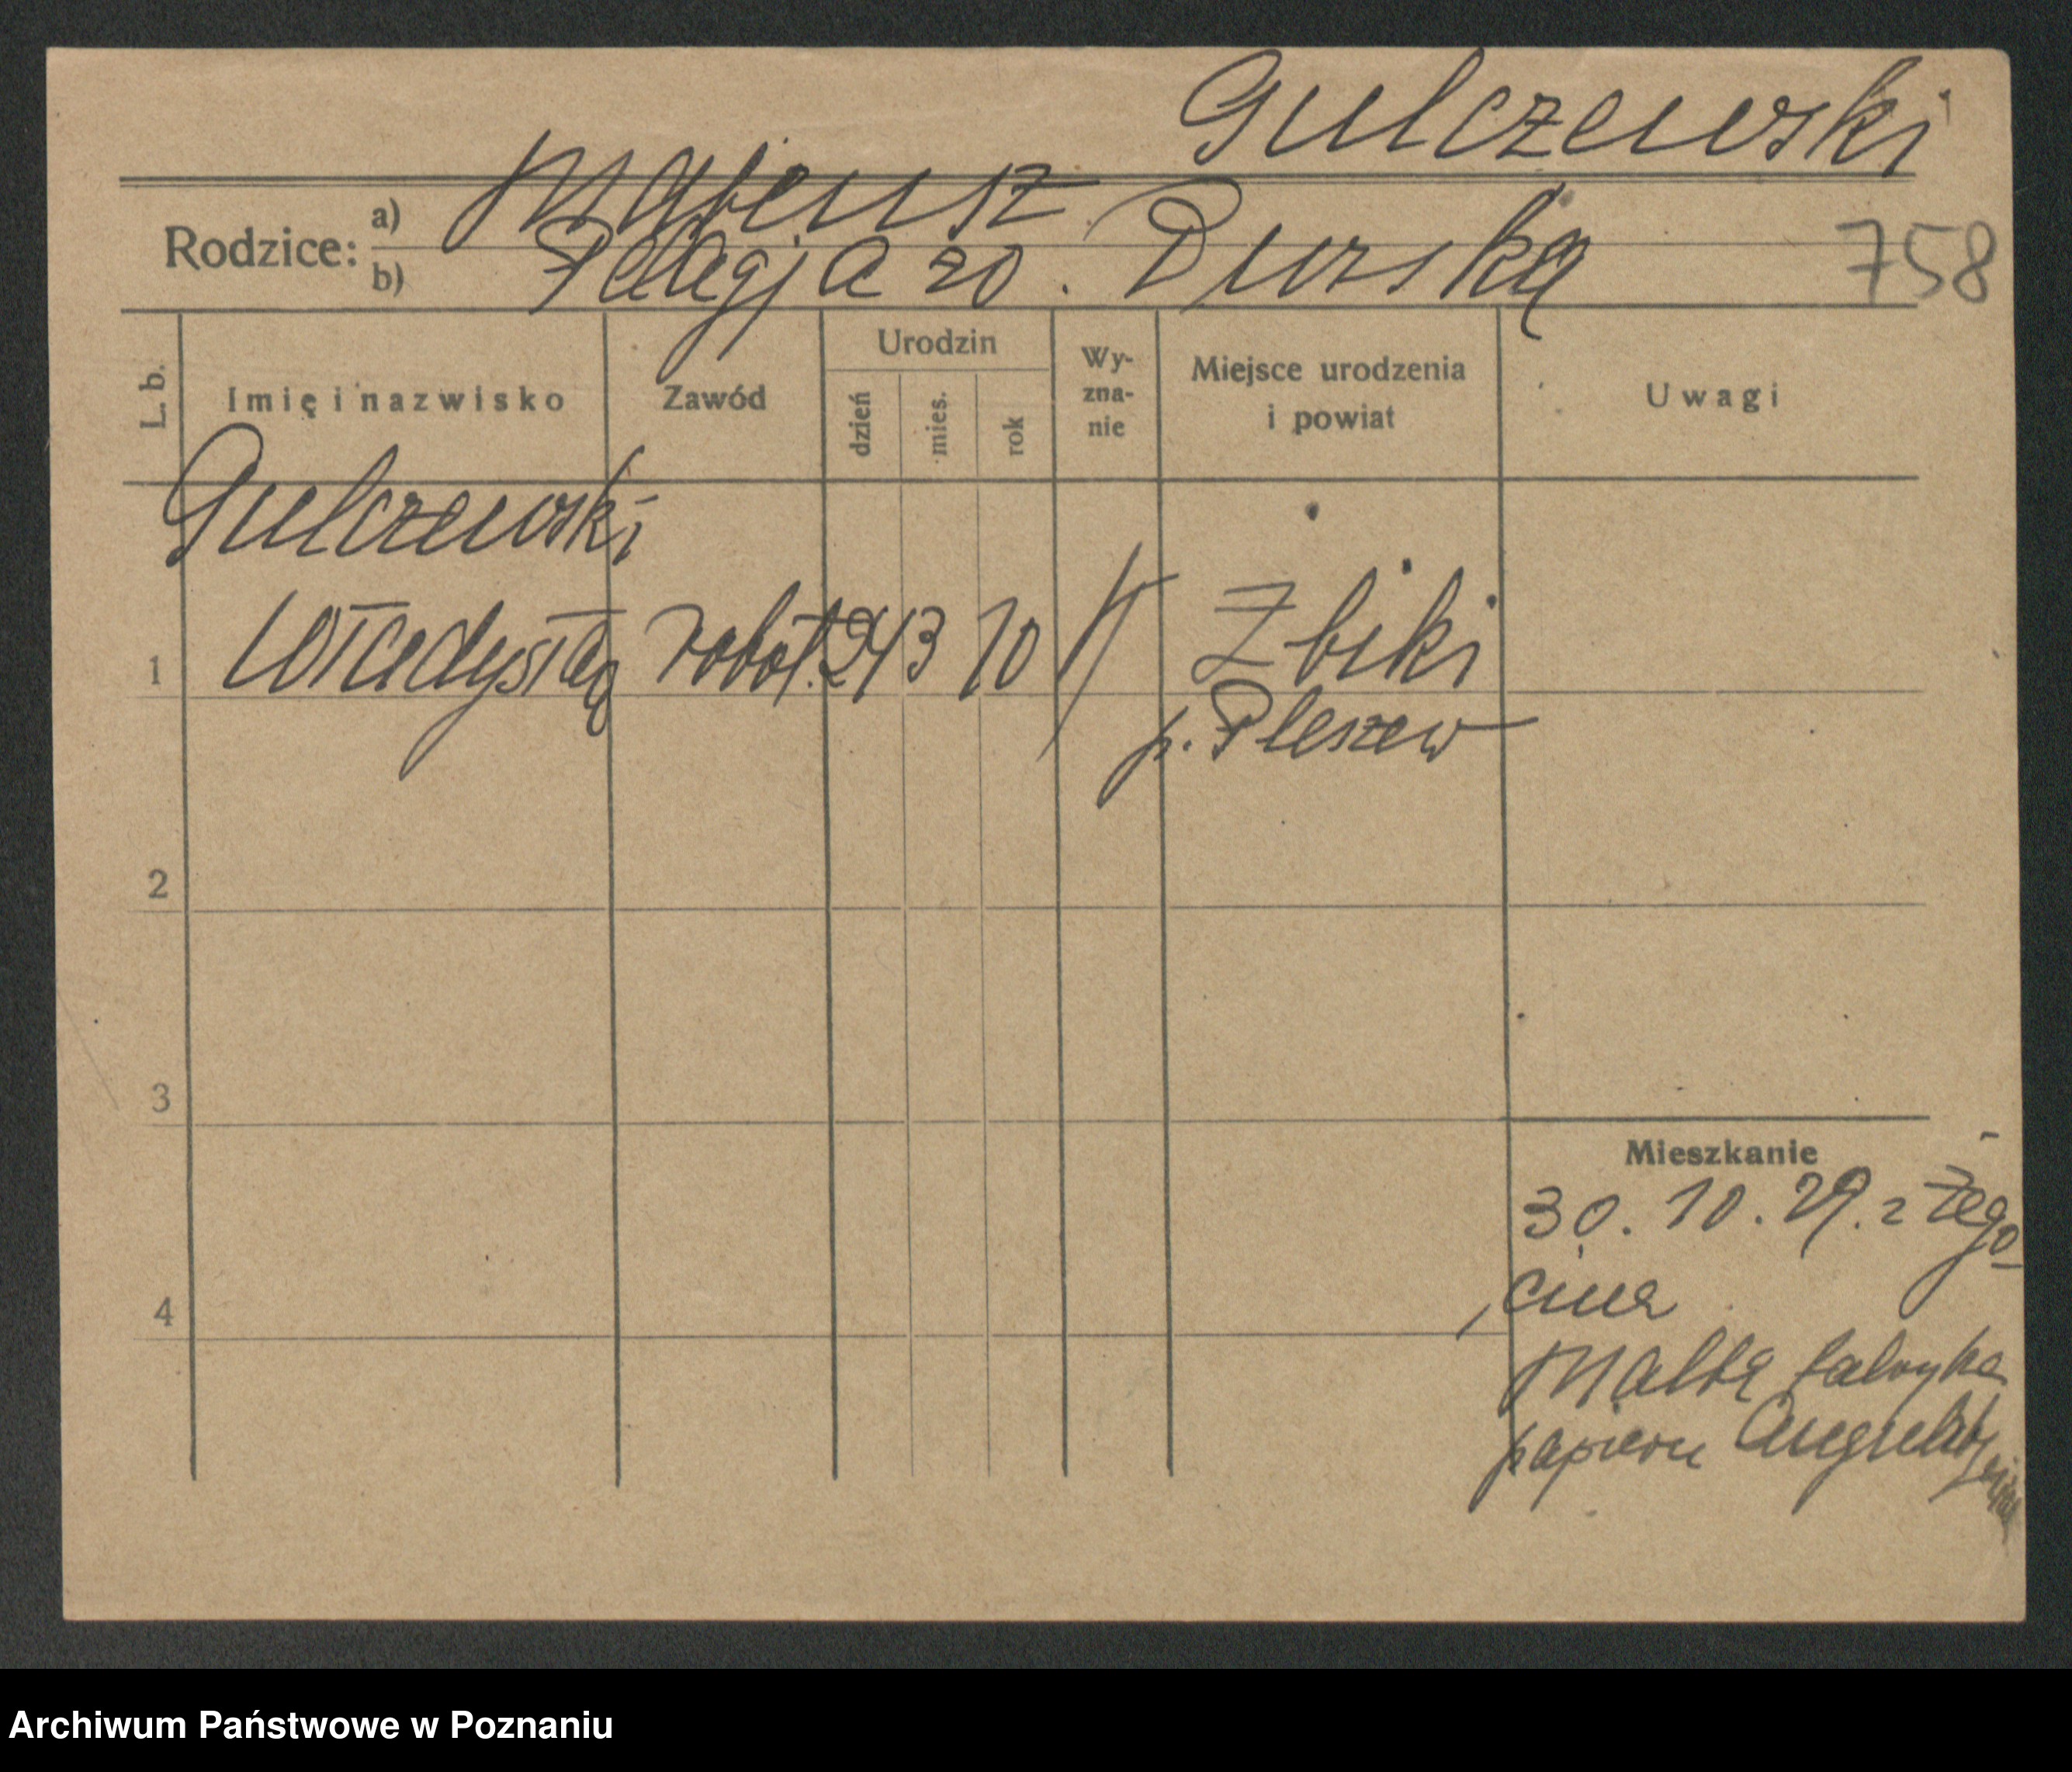 Gulczewski
Rodzice: a) Mateusz
b) Pelagja zo. Durska
758
L. b. Imię i nazwisko Zawód Urodzin dzień mies. rok Wy-zna-nie Miejsce urodzenia i powiat Uwagi
Gulczewski
1 Władysław robot. 24 3 10 K Zbiki
p. Pleszew
2
3
Mieszkanie
30. 10. 29. z Żego
cina
4
Malta fabryka
papieru
Archiwum Państwowe w Poznaniu